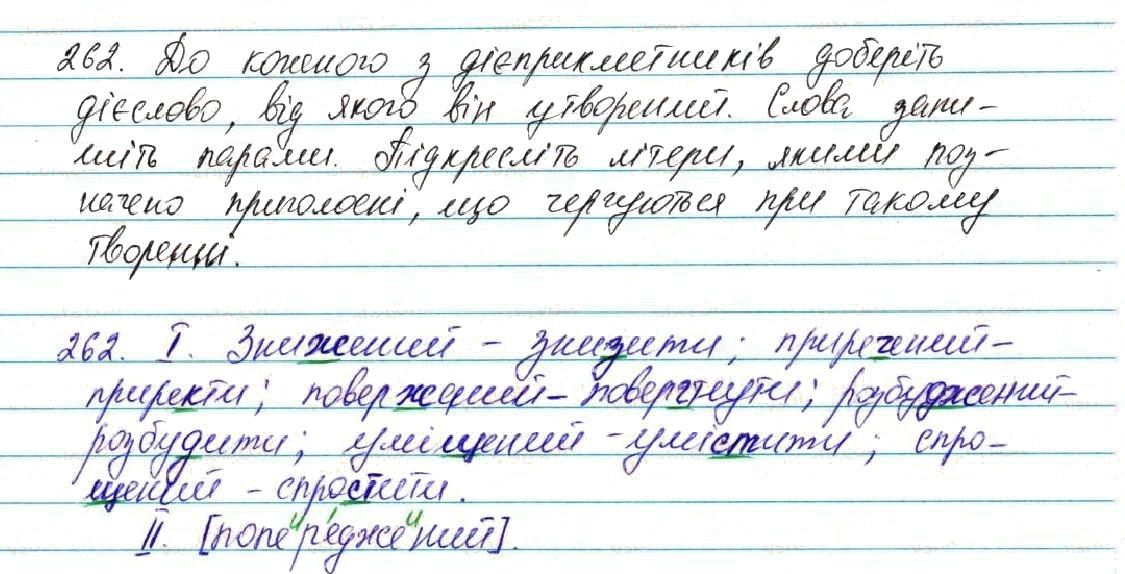 262. До кожного з дієприкметників доберіть
дієслово, від якого він утворений. Слова запи-
шіть парами. Підкресліть літери, якими поз-
начено приголосні, що чергуються при такому
творенні.
262. І. Знижений - знизити; приречений-
приректи; повержений - повергнути; розбуджений-
розбудити; уміщений - умістити; спро-
щений - спростити.
ІІ. [попеиреджеиний].